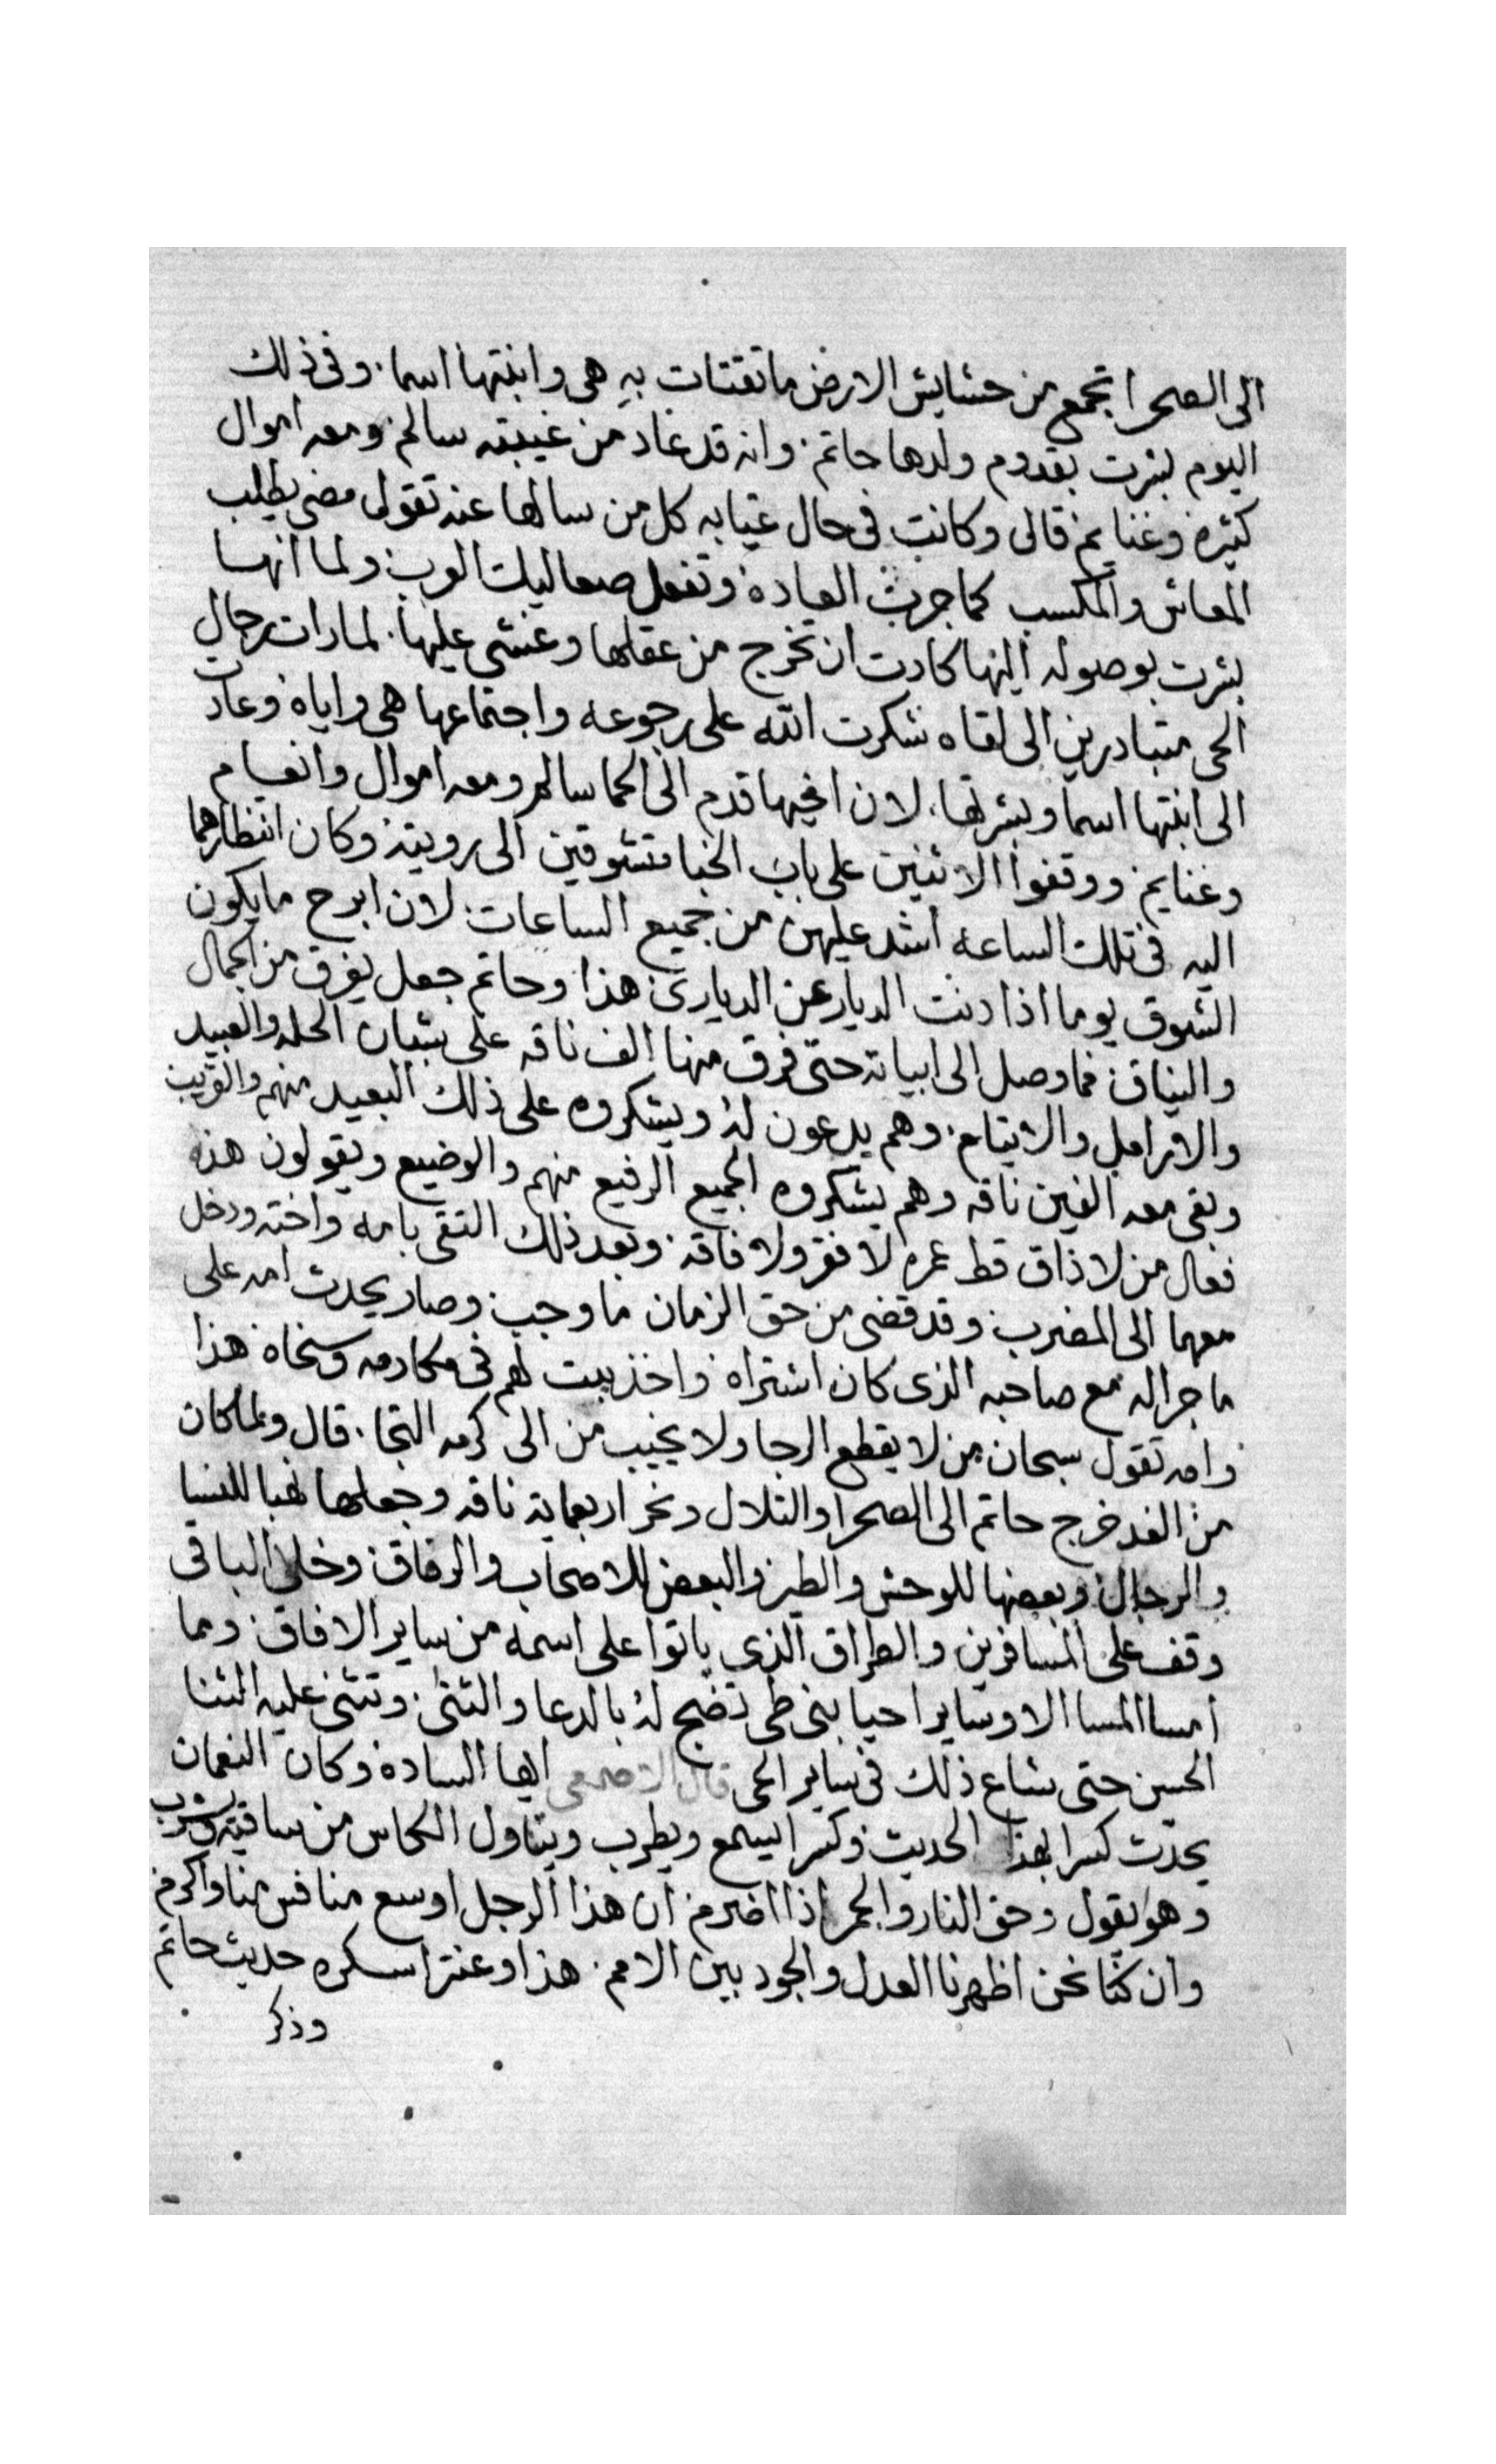 الى الصحرا تجمع من حشايش الارض ما تقتات به هى وابنتها اسما. وفى ذلك
اليوم بشرت بقدوم ولدها حاتم. وانه قد عاد من غيبته سالم. ومعه اموال
كثيره وغنايم قال وكانت فى حال غيابه كل من سالها عنه تقول مضى يطلب
المعاش والمكسب كما جرت العاده وتفعل صعاليك العرب ولما انها
بشرت بوصوله اليها كادت ان تخرج من عقلها وغشى عليها. لما رات رجال
الحى متبادرين الى لقاه شكرت الله على رجوعه واجتماعها هى واياه وعادت
الى ابنتها اسما وبشرتها. لان اخيها قدم الى الحما سالم ومعه اموال وانعام
وغنايم ووقفوا الاثنين على باب الخبا متشوقين الى رويته وكان انتظارهما
اليه فى تلك الساعه اشد عليهن من جميع الساعات. لان ابرح ما يكون
الشوق يوما اذا دنت الديار عن الديارى هذا وحاتم جعل يفرق من الجمال
والنياق فما وصل الى ابياته حتى فرق منها الف ناقه على شبان الحله والعبيد
والارامل والايتام. وهم يدعون له ويشكروه على ذلك البعيد منهم والقريب
وبقى معه الفين ناقه وهم يشكروه الجميع الرفيع منهم والوضيع ويقولون هذه
فعال من لا ذاق قط عمره لا فقر ولا فاقه. وبعد ذلك التقى بامه واخته ودخل
معهما الى المضرب وقد قضى من حق الزمان ما وجب وصار يحدث امه على
ما جرا له مع صاحبه الذى كان اشتراه واخذ بيت لهم فى مكارمه وسخاه هذا
وامه تقول سبحان من لا يقطع الرجا ولا يخيب من الى كرمه التجا. قال ولما كان
من الغد خرج حاتم الى الصحرا والتلال ونحر اربعماية ناقه وجعلها نهبا للنسا
والرجال وبعضها للوحش والطير والبعض للاصحاب والرفاق وخلى الباقى
وقف على المسافرين والطراق الذى ياتوا على اسمه من ساير الافاق. وما
امسا المسا الا وساير احيا بنى طى تضج له بالدعا والثنى. وتثنى عليه الثنا
الحسن حتى شاع ذلك فى ساير الحى قال الاصمعى ايها الساده وكان النعمان
يحدث كسرا بهذا الحديث وكسرا يسمع ويطرب ويتناول الكاس من ساقيه ويشرب
وهو يقول وحق النار والجمر اذا اضرم ان هذا الرجل اوسع منا فى منا واكرم
وان كنا نحن اظهرنا العدل والجود بين الامم. هذا وعنتر اسكره حديث حاتم
وذكر